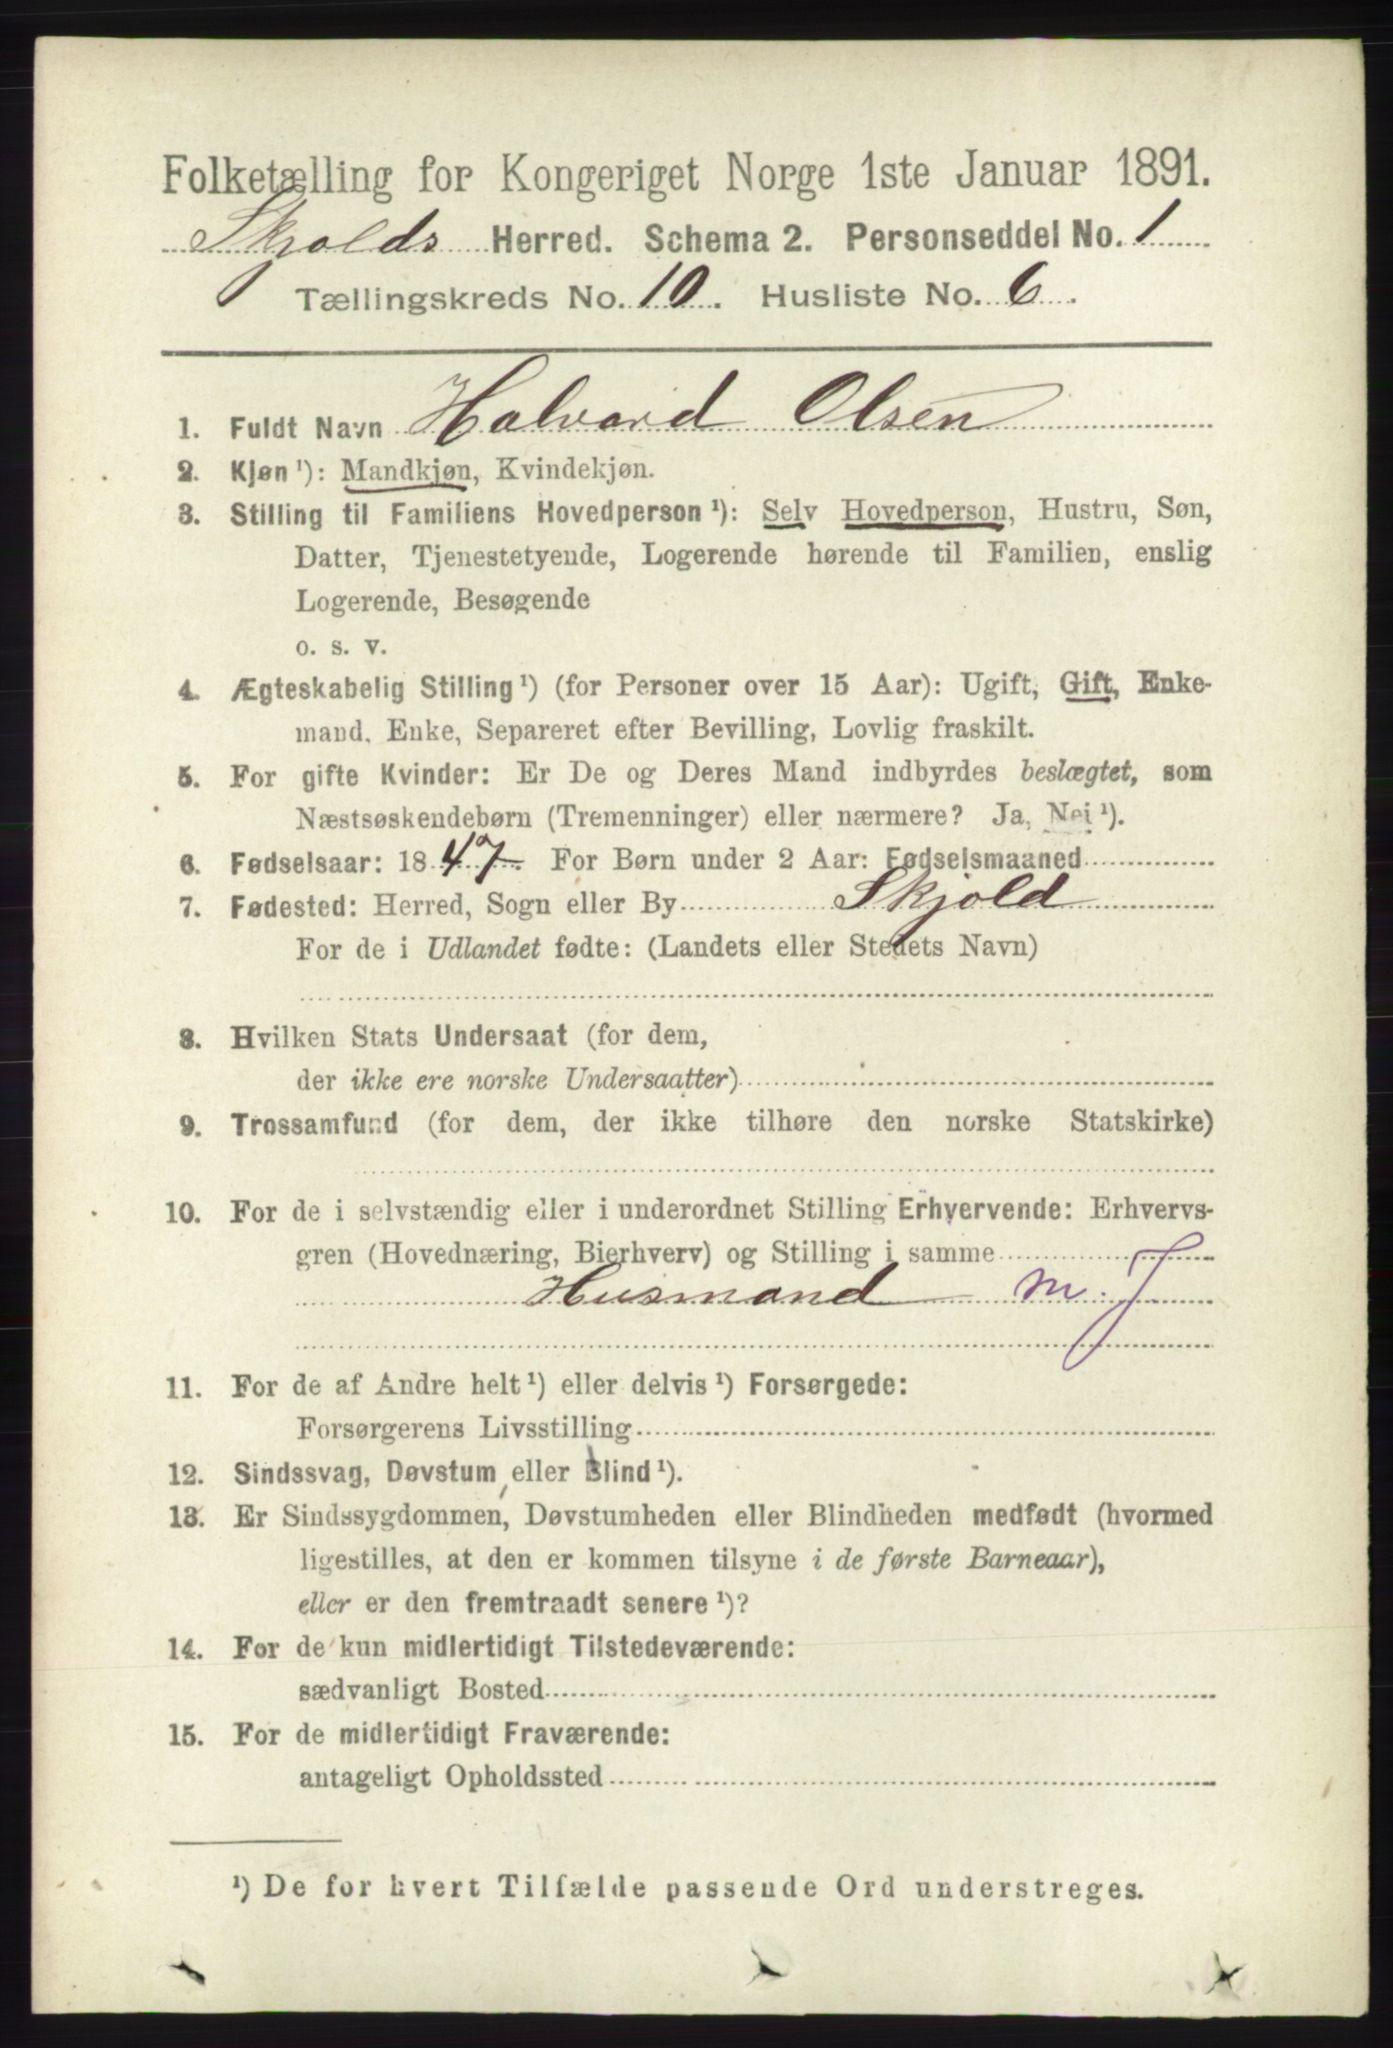 Folketælling for Kongeriget Norge 1ste Januar 1891.
Skjolds Herred. Schema 2. Personseddel No. 1
Tællingskreds No. 10. Husliste No. 6.
1. Fuldt Navn Halvard Olsen
2. Kjøn ¹): Mandkjøn, Kvindekjøn.
3. Stilling til Familiens Hovedperson ¹): Selv Hovedperson, Hustru, Søn,
Datter, Tjenestetyende, Logerende hørende til Familien, enslig
Logerende, Besøgende
o. s. v.
4. Ægteskabelig Stilling ¹) (for Personer over 15 Aar): Ugift, Gift, Enke-
mand, Enke, Separeret efter Bevilling, Lovlig fraskilt.
5. For gifte Kvinder: Er De og Deres Mand indbyrdes beslægtet, som
Næstsøskendebørn (Tremenninger) eller nærmere? Ja, Nei ¹).
6. Fødselsaar: 1847. For Børn under 2 Aar: Fødselsmaaned
7. Fødested: Herred, Sogn eller By Skjold
For de i Udlandet fødte: (Landets eller Stedets Navn)
8. Hvilken Stats Undersaat (for dem,
der ikke ere norske Undersaatter)
9. Trossamfund (for dem, der ikke tilhøre den norske Statskirke)
10. For de i selvstændig eller i underordnet Stilling Erhvervende: Erhvervs-
gren (Hovednæring, Bierhverv) og Stilling i samme
Husmand m. J
11. For de af Andre helt ¹) eller delvis ¹) Forsørgede:
Forsørgerens Livsstilling
12. Sindssvag, Døvstum eller Blind ¹).
13. Er Sindssygdommen, Døvstumheden eller Blindheden medfødt (hvormed
ligestilles, at den er kommen tilsyne i de første Barneaar),
eller er den fremtraadt senere ¹)?
14. For de kun midlertidigt Tilstedeværende:
sædvanligt Bosted
15. For de midlertidigt Fraværende:
antageligt Opholdssted
¹) De for hvert Tilfælde passende Ord understreges.